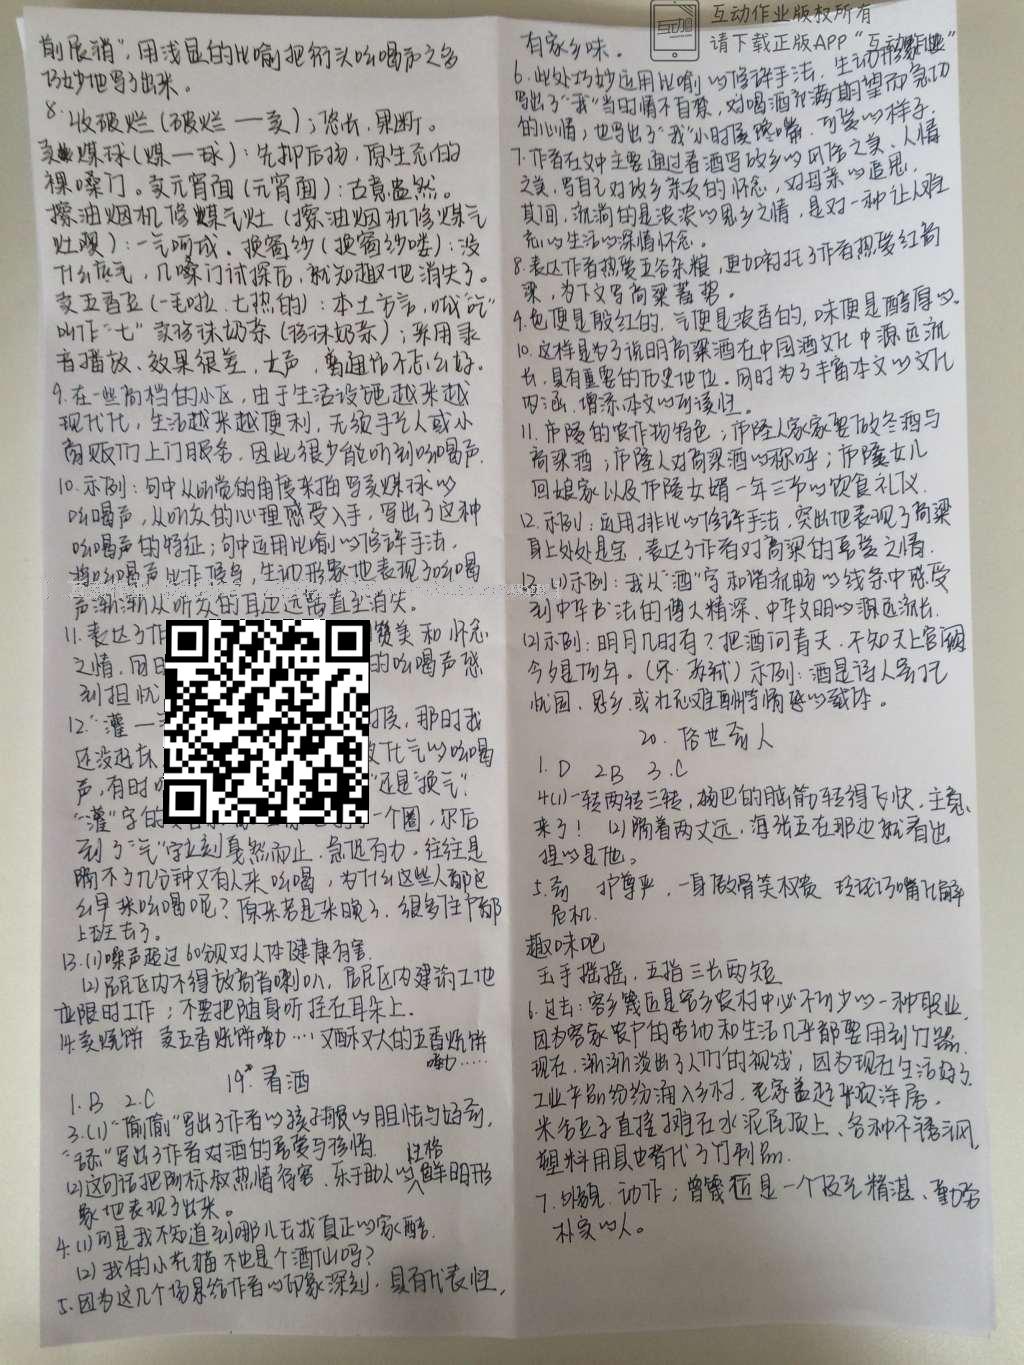 削展消"，用浅显的比喻把剃头吆喝声之多
巧妙地写了出来。
8. 收破烂(破烂一卖)：悠长，果断。
卖煤球(煤一球)：先抑后扬，原生态的
裸嗓门。卖元宵面(元宵面)：古意盎然。
擦油烟机修煤气灶(擦油烟机修煤气
灶噢)：一气呵成。换窗纱(换窗纱喽)：没
什么底气，几嗓门试探后，就知趣地消失了。
卖五香豆(一毛啦，七热的)：本土方言，城"吃"
叫作"七"卖珍珠奶茶(珍珠奶茶)；采用录
音播放，效果很差，大声，
9. 在一些高档的小区，由于生活设施越来越
现代化，生活越来越便利，无须手艺人或小
商贩们上门服务，因此很少能听到吆喝声.
10. 示例：句中从听觉的角度来描写卖煤球的
吆喝声，从听众的心理感受入手，写出了这种
吆喝声的特征；句中运用比喻的修辞手法，
将吆喝声比作候鸟，生动形象地表现了吆喝
声渐渐从听众的耳边远离直至消失。
11. 表达了作 赞美和怀念
之情，同时 的吆喝声感
到担忧
12."灌一 时候，那时我
还没赶床 文化气的吆喝
声，有时 "还是换气".
"灌"字的 一个圈，尔后
到了"气"字立刻戛然而止，急促有力，往往是
隔不了几分钟又有人来吆喝，为什么这些人都这
么早来吆喝呢？原来若是来晚了，很多住户都
上班去了。
13. (1)噪声超过60分贝对人体健康有害.
(2)居民区内不得放高音喇叭，居民区内建筑工地
应限时工作；不要把随身听挂在耳朵上.
14. 卖烧饼 卖五香烧饼嘞……又酥又大的五香烧饼
嘞……
19* 看酒
1. B 2. C
3. (1)"偷偷"写出了作者的孩子般的胆怯与好奇,
"舔"写出了作者对酒的喜爱与珍惜.
性格
(2)这句话把阿标叔热情待客、乐于助人的鲜明形
象地表现了出来。
4. (1)可是我不知道到哪儿去找真正的家醅.
(2)我的小花猫不也是个酒仙吗？
5. 因为这几个场景给作者的印象深刻，具有代表性，
互动作业版权所有
请下载正版APP"互动作业"
有家乡味。
6. 此处巧妙运用比喻的修辞手法，生动形象地
写出了"我"当时情不自禁，对喝酒充满期望而急切
的心情；也写出了"我"小时候馋嘴、可爱的样子.
7. 作者在文中主要通过看酒写故乡的风俗之美、人情
之美，写自己对故乡亲友的怀念，对母亲的追思，
其间，流淌的是浓浓的思乡之情，是对一种让人难
忘的生活的深情怀念。
8. 表达作者热爱五谷杂粮，更加衬托了作者热爱红高
粱，为下文写高粱蓄势。
9. 色便是殷红的，气便是浓香的，味便是醇厚的.
10. 这样是为了说明高粱酒在中国酒文化中源远流
长，具有重要的历史地位，同时为了丰富本文的文化
内涵，增添本文的可读性。
11. 沛陵的农作物特色；沛陵人家家要做冬酒与
高粱酒；沛陵人对高粱酒的称呼；沛陵女儿
回娘家以及沛陵女婿一年三节的饮食礼仪.
12. 示例：运用排比的修辞手法，突出地表现了高粱
身上处处是宝，表达了作者对高粱的喜爱之情.
13. (1)示例：我从"酒"字和谐流畅的线条中感受
到中华书法的博大精深、中华文明的源远流长.
(2)示例：明月几时有？把酒问青天，不知天上宫阙，
今夕是何年。(宋·苏轼)示例：酒是诗人寄托
忧国、思乡或壮志难酬等情感的载体。
20. 俗世奇人
1. D 2 B 3. C
4 (1)一转两转三转，硒巴的脑筋转得飞快，主意
来了！ (2)隔着两丈远，海张五在那边就看出
捏的是他。
5. 奇 护尊严，一身傲骨笑权贵 巧嘴化解
危机.
趣味吧
玉手摇摇，五指三长两短
6. 过去：客乡篾匠是客乡农村中必不可少的一种职业，
因为客家农户的劳动和生活几乎都要用到竹器.
现在，渐渐淡出了人们的视线，因为现在生活好了，
工业产品纷纷涌入乡村，毛家盖起平顶洋房，
米谷豆子直接摊在水泥屋顶上、各种不锈钢，
塑料用具也替代了竹制品.
7. 外貌、动作；曾篾匠是一个技艺精湛、勤劳
朴实的人。